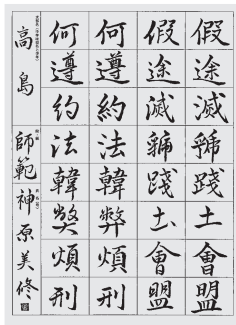 假途滅虢踐土會盟
假途滅虢踐土會盟
何遵約法韓弊煩刑
何遵約法韓弊煩刑
高島 師範 神原美修